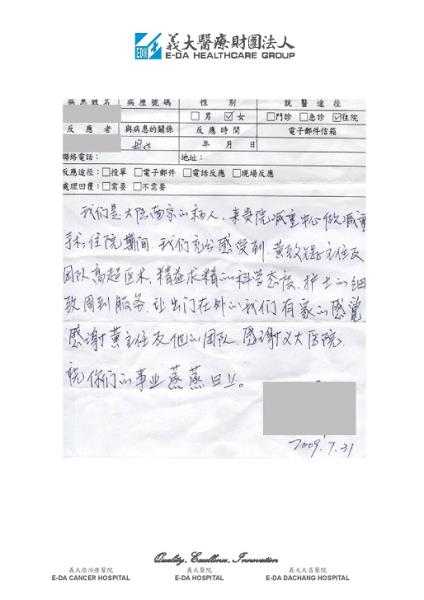 義大醫療財團法人
E-DA HEALTHCARE GROUP
病患姓名 病歷號碼 性別 就醫途徑
□男 ☑女 □門診 □急診 ☑住院
反應者 與病患的關係 反應時間 電子郵件信箱
年 月 日
聯絡電話： 地址：
反應途徑：□投單 □電子郵件 □電話反應 □現場反應
處理回覆：□需要 □不需要
我们是大陆南京的病人，来贵院减重中心做减重
手术，住院期间，我们充分感受到，黄致錕主任及
团队高超医术，精益求精的科学态度，护士的细
致周到服务，让出门在外的我们有家的感觉
感谢黄主任及他的团队，感谢义大医院，
祝你们的事业蒸蒸日上。
2009.7.31
Quality, Excellence, Innovation
義大癌治療醫院 義大醫院 義大大昌醫院
E-DA CANCER HOSPITAL E-DA HOSPITAL E-DA DACHANG HOSPITAL